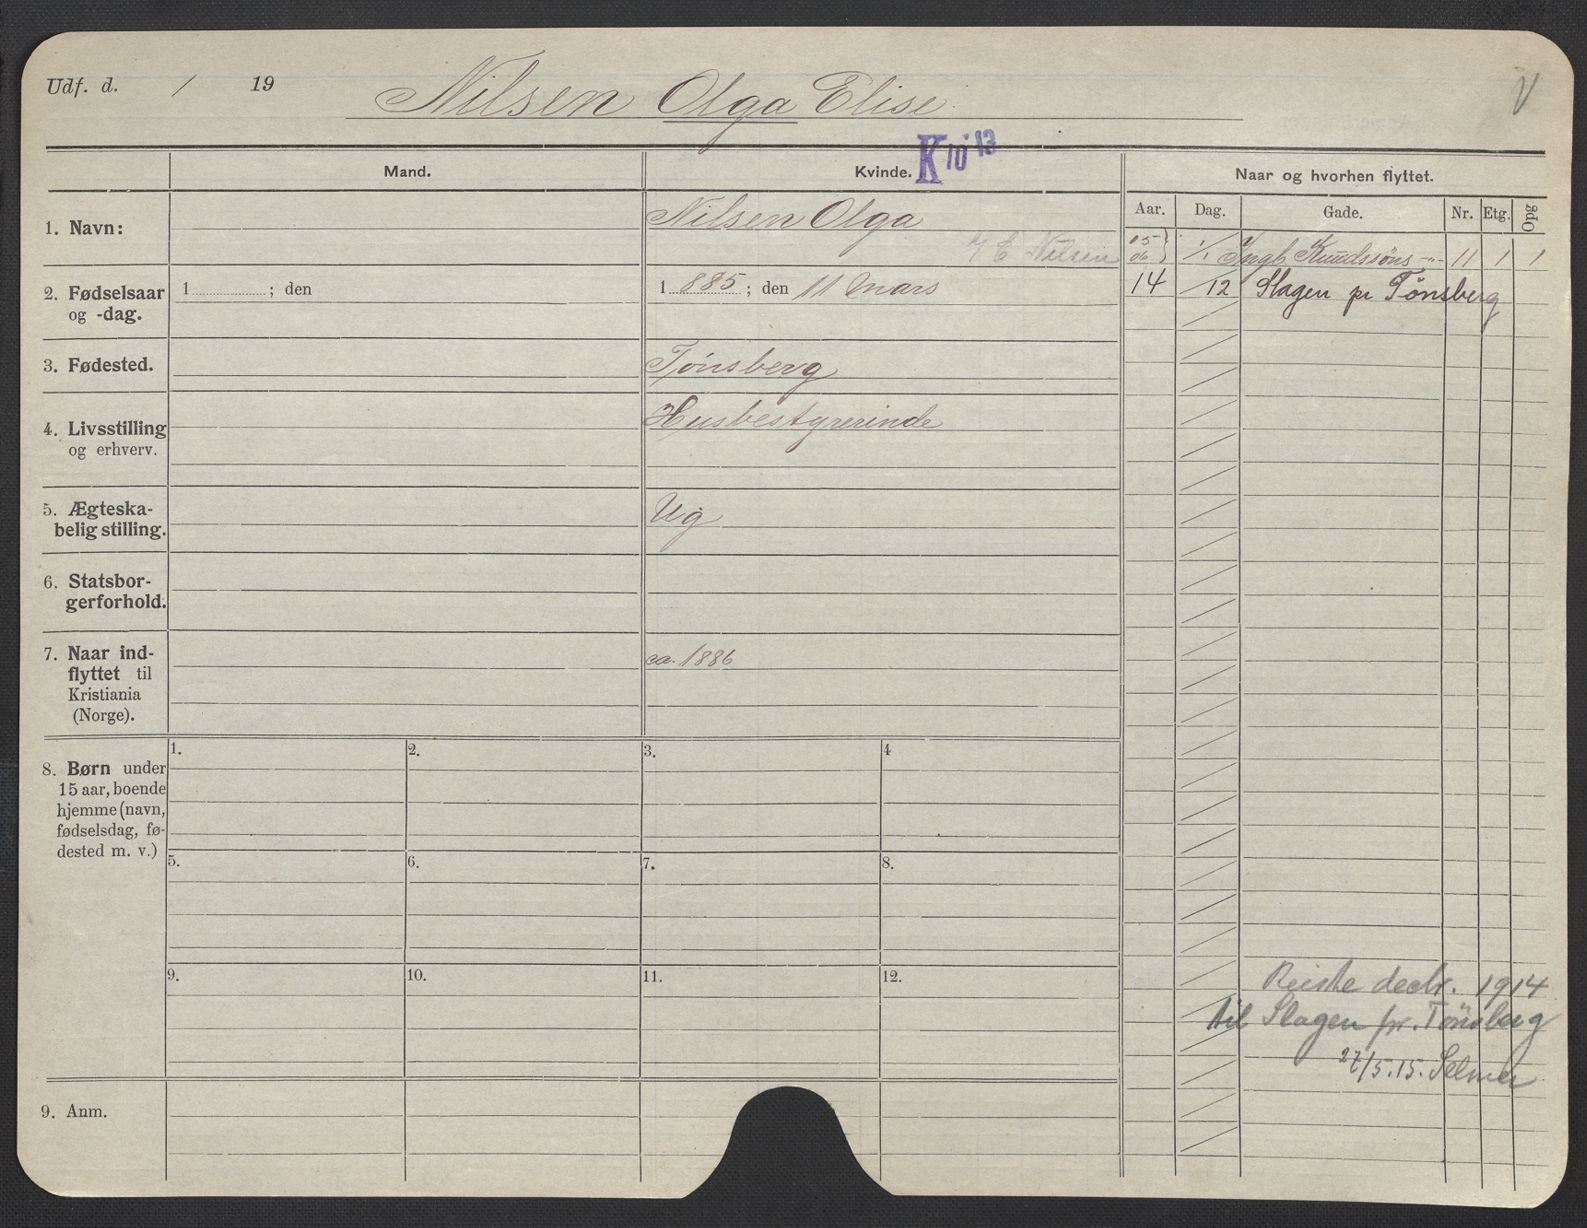 Udf. d. / 19 Nilsen Olga Elise V
K 10 13
Mand. Kvinde. Naar og hvorhen flyttet.
Aar. Dag. Gade. Nr. Etg. Opg
1. Navn: Nilsen Olga
E Nilsen
05 06 } 1/1 Ingb. Knudssøns -"- 11 1 1
2. Fødselsaar og -dag. 1 ; den 1 885 ; den 11 Mars
14 /12 Slagen pr Tønsberg
3. Fødested. Tønsberg
4. Livsstilling og erhverv. Husbestyrerinde
5. Ægteska-
belig stilling. Ug
6. Statsbor-
gerforhold.
7. Naar ind-
flyttet til
Kristiania
(Norge).
ca. 1886
8. Børn under
15 aar, boende
hjemme (navn,
fødselsdag, fø-
dested m. v.)
1. 2. 3. 4
5. 6. 7. 8.
9. 10. 11. 12.
Reiste decbr. 1914
til Slagen pr. Tønsberg
27/5.15. Selmer
9. Anm.